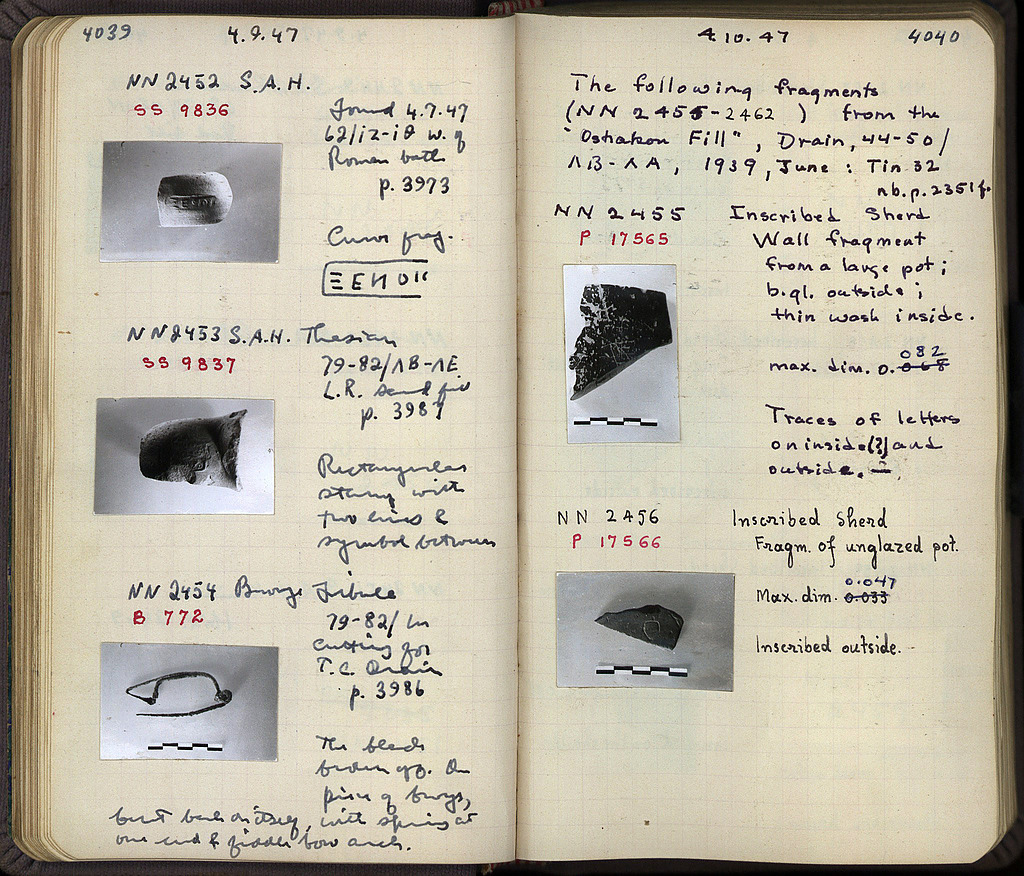 4039 4.9.47
NN 2452 S.A.H.
SS 9836
Found 4.7.47
62/ΙΖ-ΙΘ W. of
Roman bath
p. 3973
Curve frag.
ΞΕΝΟΠ
NN 2453 S.A.H. Thasian
SS 9837
79-82/ΛΒ-ΛΕ
L.R. sand fill
p. 3987
Rectangular
stamp with
two lines &
symbol between
NN 2454 Bronze Fibula
B 772
79-82/
cutting for
T.C. Drain
p. 3986
The bleads
broken off. One
piece of bronze,
bent back on itself, with spring at
one end & fiddle bow arch.
4.10.47 4040
The following fragments
(NN 2455-2462) from the
"Ostrakon Fill", Drain, 44-50/
ΛΒ-ΛΑ, 1939, June: Tin 32
nb. p. 2351 f.
NN 2455 Inscribed Sherd
P 17565
Wall fragment
from a large pot;
b.gl. outside;
thin wash inside.
082
max. dim. 0.068
Traces of letters
on inside(?) and
outside.
NN 2456 Inscribed Sherd
P 17566
Fragm. of unglazed pot.
0.047
Max. dim. 0.033
Inscribed outside.